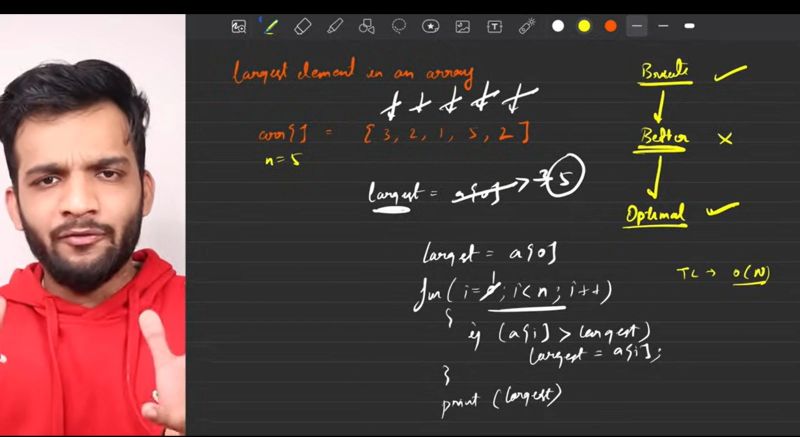 Largest element in an array
arr[] = [3, 2, 1, 5, 2]
n=5
largest = a[0] > 3 5
largest = a[0]
for (i=0 1; i<n; i++)
{
if (a[i] > largest)
largest = a[i];
}
print (largest)
Brute
Better
Optimal
TC → O(N)